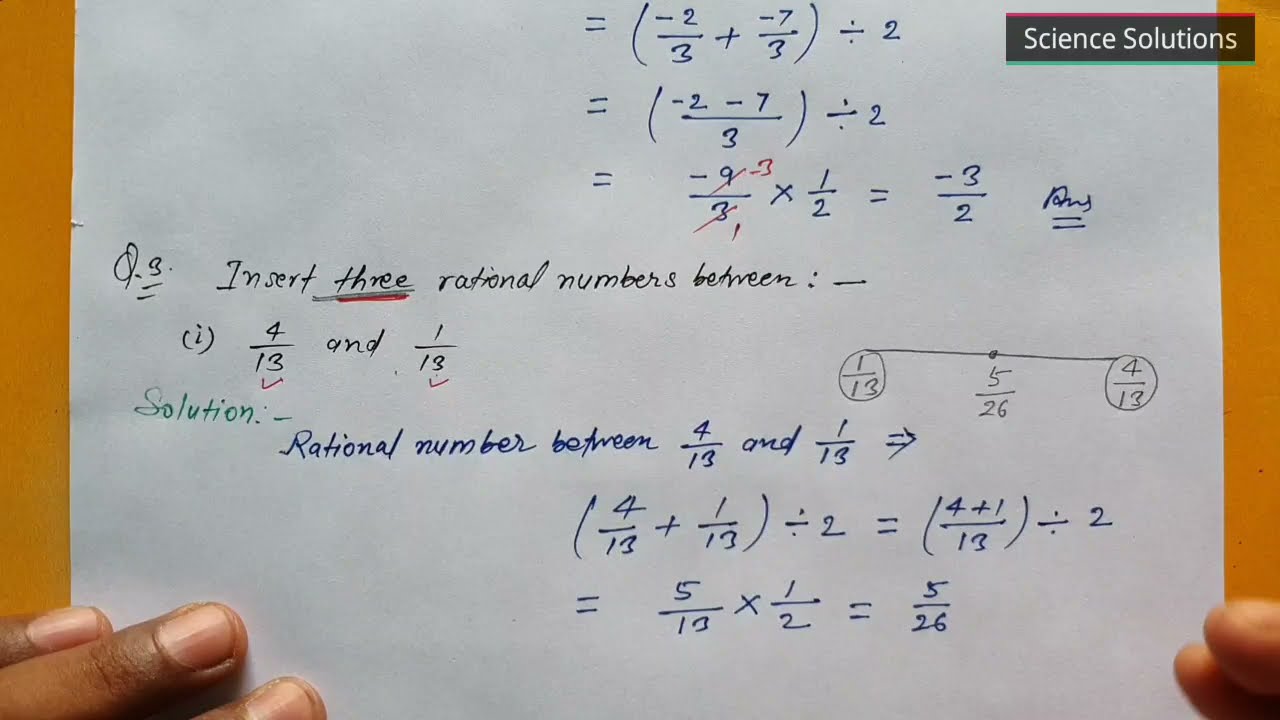 = (-2/3 + -7/3) ÷ 2
Science Solutions
= (-2 - 7/3) ÷ 2
= -9/3 -3 1 × 1/2 = -3/2 Ans
Q.3. Insert three rational numbers between : —
(i) 4/13 and 1/13
1/13 5/26 4/13
Solution:-
Rational number between 4/13 and 1/13 ⇒
(4/13 + 1/13) ÷ 2 = (4+1/13) ÷ 2
= 5/13 × 1/2 = 5/26